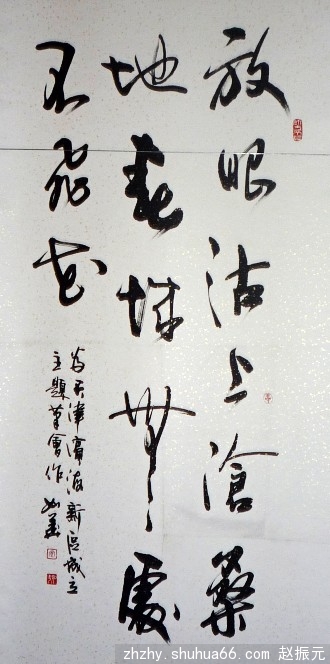 放眼沽上滄桑
地春城無處
不飛花
為天津濱海新區成立
主題筆會作
zhzhy.shuhua66.com 赵振元